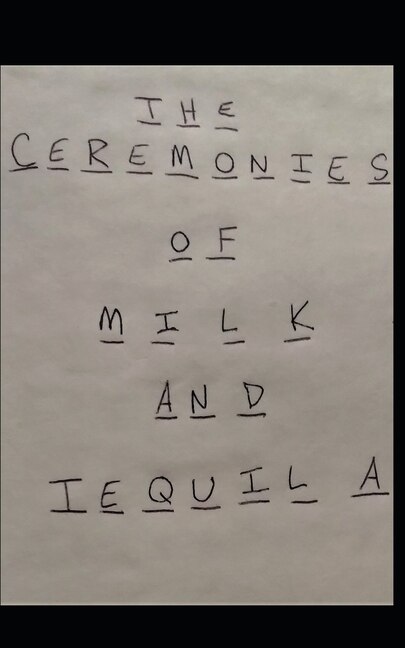 THE
CEREMONIES
OF
MILK
AND
TEQUILA